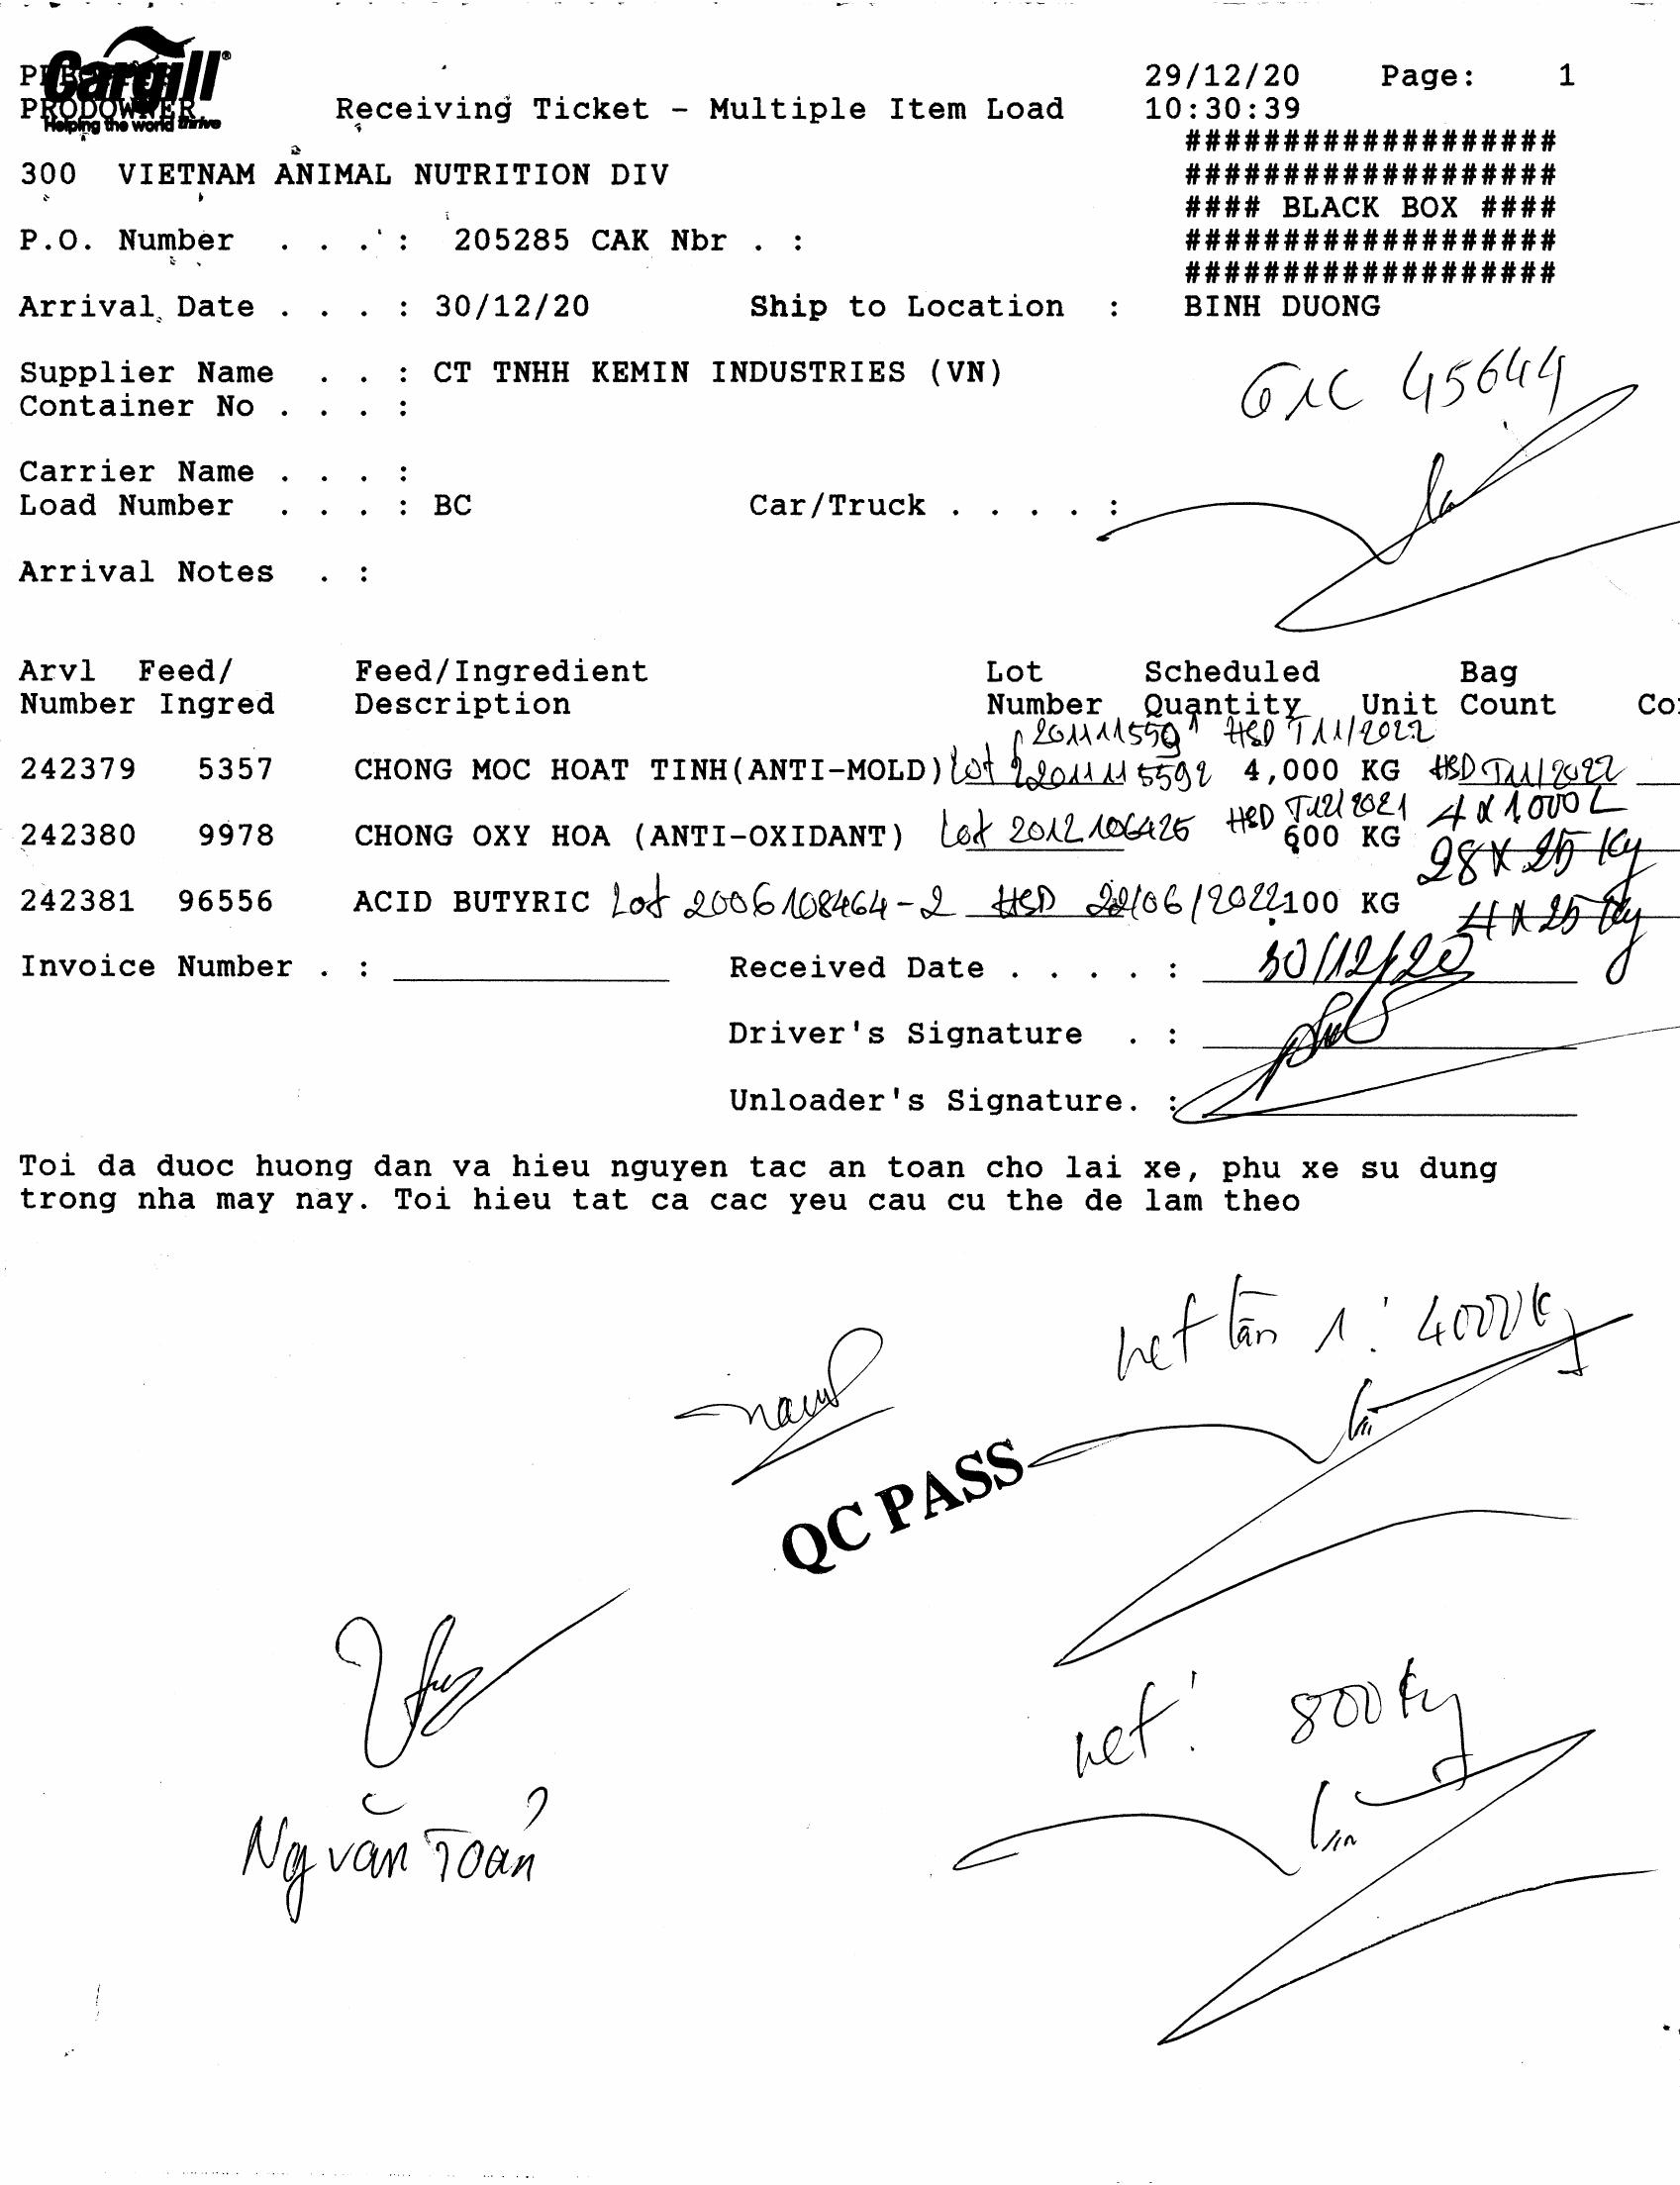 Cargill®
Helping the world thrive
PRODOWNER
29/12/20 Page: 1
Receiving Ticket - Multiple Item Load 10:30:39
###################
300 VIETNAM ANIMAL NUTRITION DIV ###################
#### BLACK BOX ####
P.O. Number . . . : 205285 CAK Nbr . : ###################
###################
Arrival Date . . . : 30/12/20 Ship to Location : BINH DUONG
Supplier Name . . : CT TNHH KEMIN INDUSTRIES (VN)
Container No . . . :
61C 45644
Carrier Name . . . :
Load Number . . . : BC Car/Truck . . . . :
Arrival Notes . :
Arvl Feed/ Feed/Ingredient Lot Scheduled Bag
Number Ingred Description Number Quantity Unit Count Co
HSD T11/2022
242379 5357 CHONG MOC HOAT TINH(ANTI-MOLD) Lot 4,000 KG HSD T11/2022
HSD T12/2021 4 x 1000L
242380 9978 CHONG OXY HOA (ANTI-OXIDANT) Lot 2012106425 600 KG
28 x 25 Kg
242381 96556 ACID BUTYRIC Lot 2006108464-2 HSD 22/06/2022 100 KG
4 x 25 Kg
Invoice Number . : Received Date . . . . : 30/12/20
Driver's Signature . :
Unloader's Signature. :
Toi da duoc huong dan va hieu nguyen tac an toan cho lai xe, phu xe su dung
trong nha may nay. Toi hieu tat ca cac yeu cau cu the de lam theo
net lần 1: 4000Kg
QC PASS
net: 800Kg
Ng văn Toản